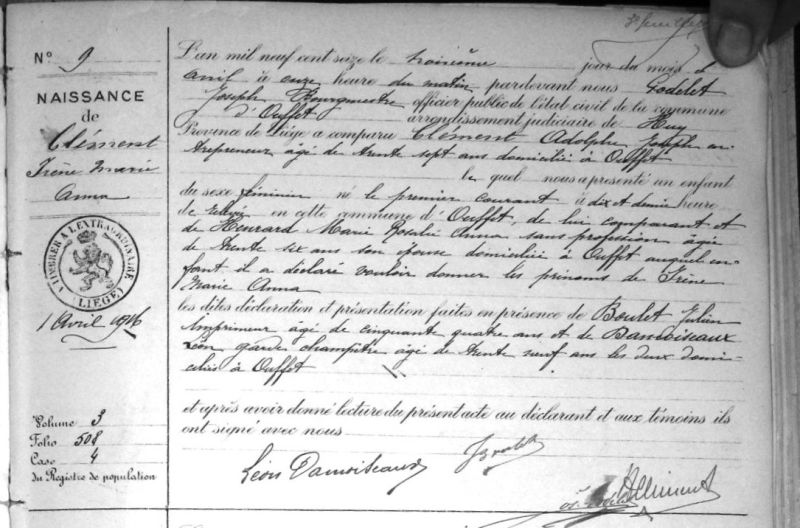 N° 9
NAISSANCE
de
Clément
Irène Marie
Anna
A TIMBRER A L'EXTRAORDINAIRE
(LIÉGE)
1 Avril 1916
Volume 3
Folio 508
Case 4
du Registre de population
L'an mil neuf cent seize le troisième jour du mois d
avril à onze heure du matin pardevant nous Godelet
Joseph Bourgmestre officier public de l'état civil de la commune
d'Ouffet arrondissement judiciaire de Huy
Province de Liége a comparu Clément Adolphe Joseph en-
trepreneur âgé de trente sept ans domicilié à Ouffet
le quel nous a présenté un enfant
du sexe féminin né le premier courant à dix et demie heure
de relevée en cette commune d'Ouffet, de lui comparant et
de Henrard Marie Rosalie Anna sans profession âgée
de trente six ans son épouse domiciliée à Ouffet auquel en-
fant il a déclaré vouloir donner les prénoms de Irène
Marie Anna
les dites déclaration et présentation faites en présence de Boulet Julien
imprimeur âgé de cinquante quatre ans et de Damoiseaux
Léon garde champêtre âgé de trente neuf ans les deux domi-
ciliés à Ouffet
et après avoir donné lecture du présent acte au déclarant et aux témoins ils
ont signé avec nous
Léon Damoiseaux
A Clément